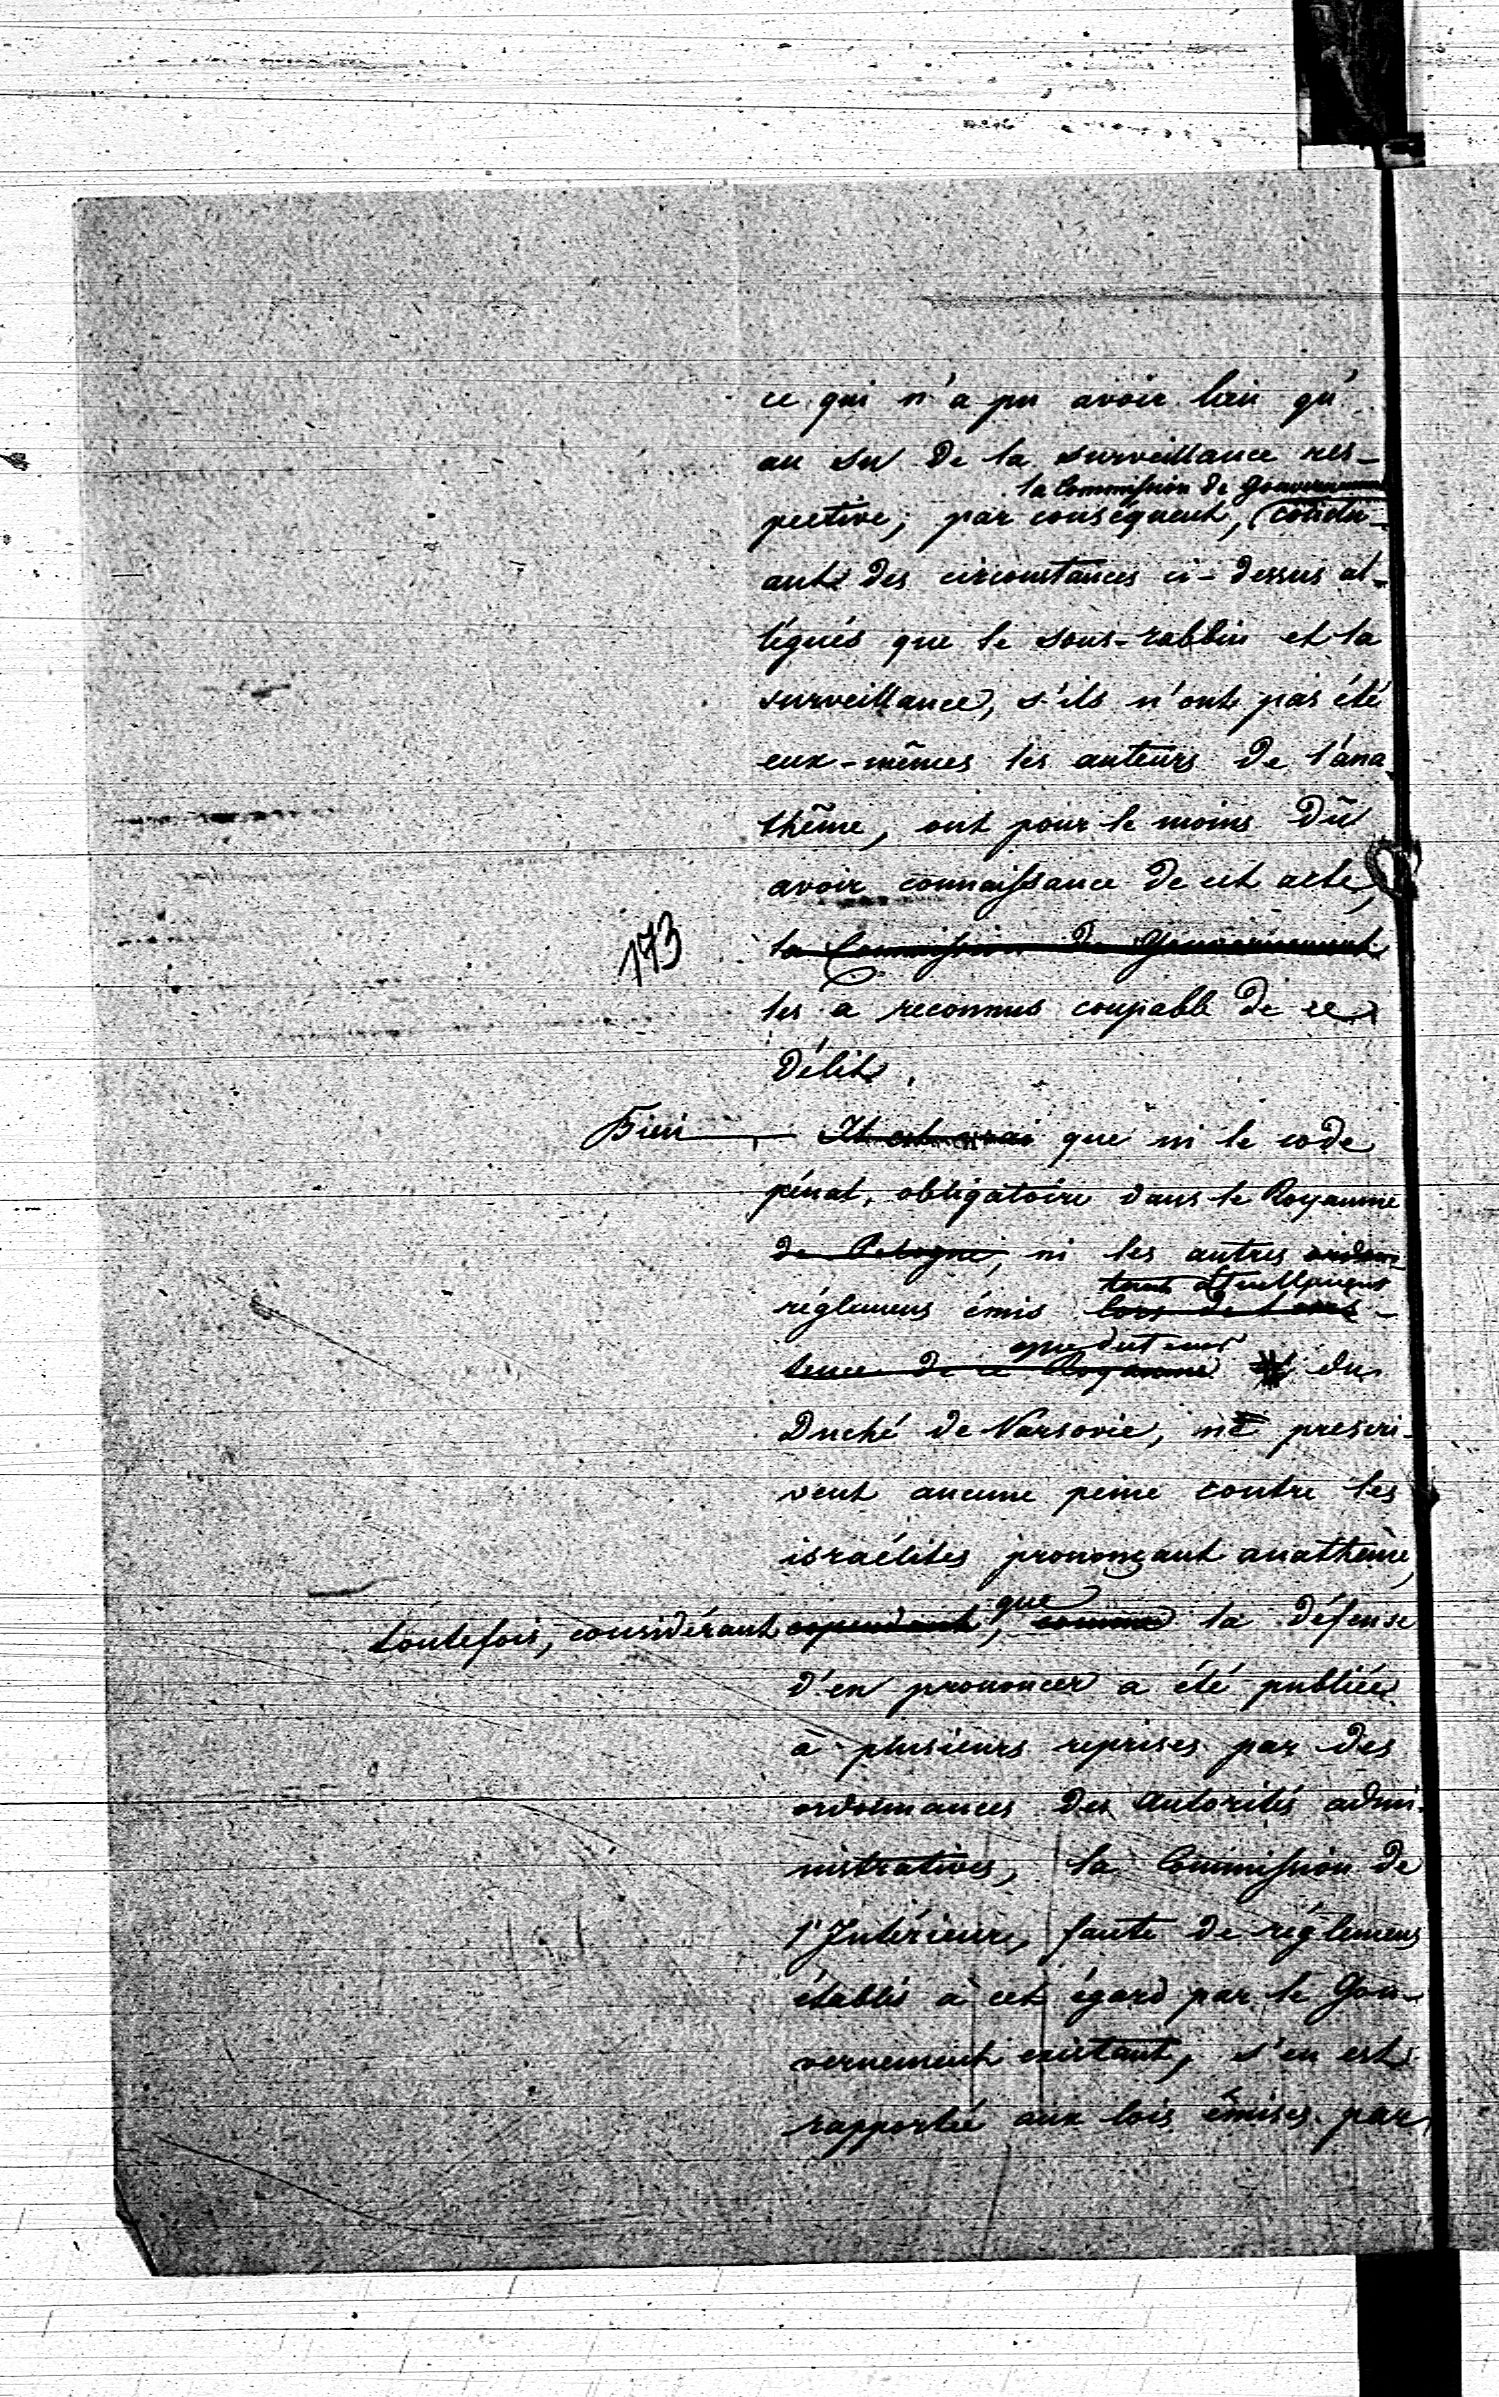 ce qui n'a pu avoir lieu qu'
au su de la surveillance res-
la Commission de Gouvernement
pective; par conséquent, conclu-
ant des circonstances ci-dessus al-
légués que le sous-rabbin et la
surveillance, s'ils n'ont pas été
eux-mêmes les auteurs de l'ana-
thême, ont pour le moins dû
avoir connaissance de cet acte,
173
la Commission de Gouvernement
les a reconnus coupable de ce
délit.
Bien Il est vrai que ni le code
pénal, obligatoire dans le Royaume
de Pologne, ni les autres
tant actuellement
réglemens émis lors de l'exis-
que du tems
tence de ce Royaume du
Duché de Varsovie, ne prescri-
vent aucune peine contre les
israélites prononçant anathème,
toutefois, considérant cependant, que comme la défense
d'en prononcer a été publiée
à plusieurs reprises par des
ordonnances des Autorités admi-
nistratives, la Commission de
l'Intérieur, faute de réglemens
établis à cet égard par le Gou-
vernement existant, s'en est
rapportée aux lois émises par